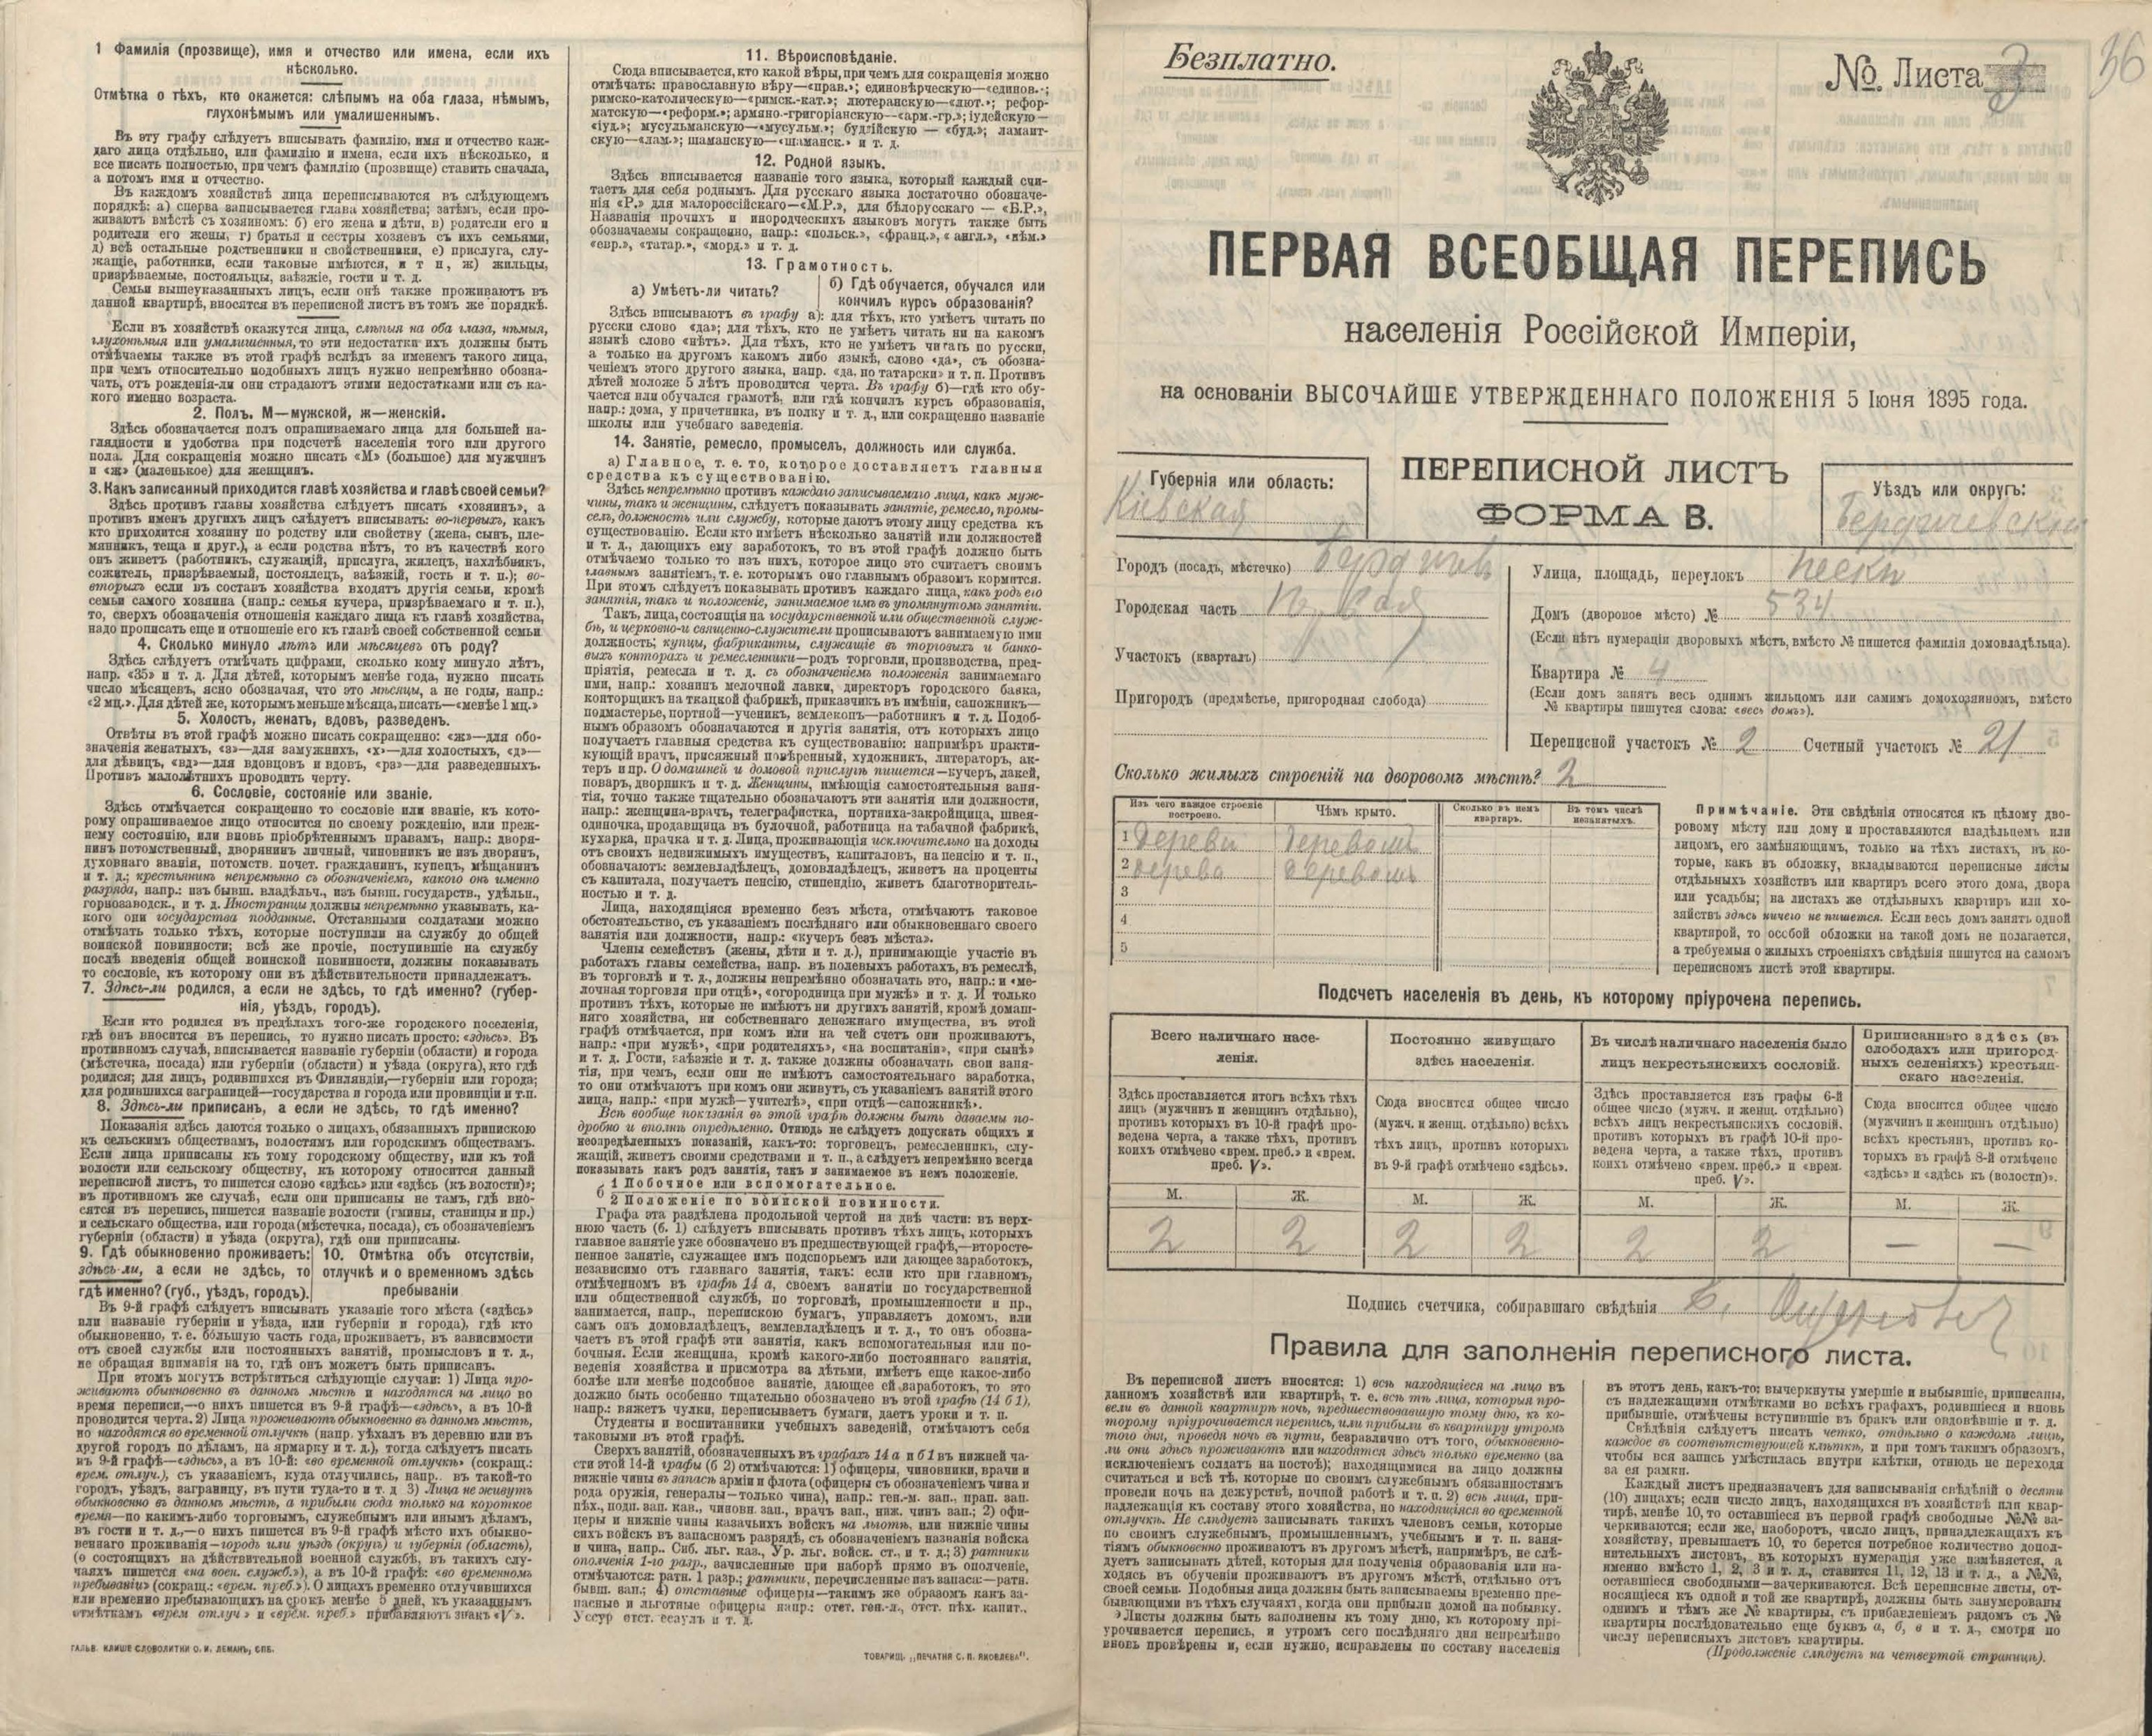 1 Фамилія (прозвище), имя и отчество или имена, если ихъ
нѣсколько.
Отмѣтка о тѣхъ, кто окажется: слѣпымъ на оба глаза, нѣмымъ,
глухонѣмымъ или умалишеннымъ.
Въ эту графу слѣдуетъ вписывать фамилію, имя и отчество каж-
даго лица отдѣльно, или фамилію и имена, если ихъ нѣсколько, и
все писать полностью, при чемъ фамилію (прозвище) ставить сначала,
а потомъ имя и отчество.
Въ каждомъ хозяйствѣ лица переписываются въ слѣдующемъ
порядкѣ: а) сперва записывается глава хозяйства; затѣмъ, если про-
живаютъ вмѣстѣ съ хозяиномъ: б) его жена и дѣти, в) родители его и
родители его жены, г) братья и сестры хозяевъ съ ихъ семьями,
д) всѣ остальные родственники и свойственники, е) прислуга, слу-
жащіе, работники, если таковые имѣются, и т п, ж) жильцы,
призрѣваемые, постояльцы, заѣзжіе, гости и т. д.
Семьи вышеуказанныхъ лицъ, если онѣ также проживаютъ въ
данной квартирѣ, вносятся въ переписной листъ въ томъ же порядкѣ.
Если въ хозяйствѣ окажутся лица, слѣпыя на оба глаза, нѣмыя,
глухонѣмыя или умалишенныя, то эти недостатки ихъ должны быть
отмѣчаемы также въ этой графѣ вслѣдъ за именемъ такого лица,
при чемъ относительно подобныхъ лицъ нужно непремѣнно обозна-
чать, отъ рожденія-ли они страдаютъ этими недостатками или съ ка-
кого именно возраста.
2. Полъ. М—мужской, ж—женскій.
Здѣсь обозначается полъ опрашиваемаго лица для большей на-
глядности и удобства при подсчетѣ населенія того или другого
пола. Для сокращенія можно писать «М» (большое) для мужчинъ
и «ж» (маленькое) для женщинъ.
3. Какъ записанный приходится главѣ хозяйства и главѣ своей семьи?
Здѣсь противъ главы хозяйства слѣдуетъ писать «хозяинъ», а
противъ именъ другихъ лицъ слѣдуетъ вписывать: во-первыхъ, какъ
кто приходится хозяину по родству или свойству (жена, сынъ, пле-
мянникъ, теща и друг.), а если родства нѣтъ, то въ качествѣ кого
онъ живетъ (работникъ, служащій, прислуга, жилецъ, нахлѣбникъ,
сожитель, призрѣваемый, постоялецъ, заѣзжій, гость и т. п.); во-
вторыхъ если въ составъ хозяйства входятъ другія семьи, кромѣ
семьи самого хозяина (напр.: семья кучера, призрѣваемаго и т. п.),
то, сверхъ обозначенія отношенія каждаго лица къ главѣ хозяйства,
надо прописать еще и отношеніе его къ главѣ своей собственной семьи
4. Сколько минуло лѣтъ или мѣсяцевъ отъ роду?
Здѣсь слѣдуетъ отмѣчать цифрами, сколько кому минуло лѣтъ,
напр. «35» и т. д. Для дѣтей, которымъ менѣе года, нужно писать
число мѣсяцевъ, ясно обозначая, что это мѣсяцы, а не годы, напр.:
«2 мц.». Для дѣтей же, которымъ меньше мѣсяца, писать—«менѣе 1 мц.»
5. Холостъ, женатъ, вдовъ, разведенъ.
Отвѣты въ этой графѣ можно писать сокращенно: «ж»—для обо-
значенія женатыхъ, «з»—для замужнихъ, «х»—для холостыхъ, «д»—
для дѣвицъ, «вд»—для вдовцовъ и вдовъ, «рз»—для разведенныхъ.
Противъ малолѣтнихъ проводить черту.
6. Сословіе, состояніе или званіе.
Здѣсь отмѣчается сокращенно то сословіе или званіе, къ кото-
рому опрашиваемое лицо относится по своему рожденію, или преж-
нему состоянію, или вновь пріобрѣтеннымъ правамъ, напр.: дворя-
нинъ потомственный, дворянинъ личный, чиновникъ не изъ дворянъ,
духовнаго званія, потомств. почет. гражданинъ, купецъ, мѣщанинъ
и т. д.; крестьянинъ непремѣнно съ обозначеніемъ, какого онъ именно
разряда, напр.: изъ бывш. владѣльч., изъ бывш. государств., удѣльн.,
горнозаводск., и т. д. Иностранцы должны непремѣнно указывать, ка-
кого они государства подданные. Отставными солдатами можно
отмѣчать только тѣхъ, которые поступили на службу до общей
воинской повинности; всѣ же прочіе, поступившіе на службу
послѣ введенія общей воинской повинности, должны показывать
то сословіе, къ которому они въ дѣйствительности принадлежатъ.
7. Здѣсь-ли родился, а если не здѣсь, то гдѣ именно? (губер-
нія, уѣздъ, городъ).
Если кто родился въ предѣлахъ того-же городского поселенія,
гдѣ онъ вносится въ перепись, то нужно писать просто: «здѣсь». Въ
противномъ случаѣ, вписывается названіе губерніи (области) и города
(мѣстечка, посада) или губерніи (области) и уѣзда (округа), кто гдѣ
родился; для лицъ, родившихся въ Финляндіи,—губерніи или города;
для родившихся заграницей—государства и города или провинціи и т.п.
8. Здѣсь-ли приписанъ, а если не здѣсь, то гдѣ именно?
Показанія здѣсь даются только о лицахъ, обязанныхъ припискою
къ сельскимъ обществамъ, волостямъ или городскимъ обществамъ.
Если лица приписаны къ тому городскому обществу, или къ той
волости или сельскому обществу, къ которому относится данный
переписной листъ, то пишется слово «здѣсь» или «здѣсь (къ волости)»;
въ противномъ же случаѣ, если они приписаны не тамъ, гдѣ вно-
сятся въ перепись, пишется названіе волости (гмины, станицы и пр.)
и сельскаго общества, или города (мѣстечка, посада), съ обозначеніемъ
губерніи (области) и уѣзда (округа), гдѣ они приписаны.
9. Гдѣ обыкновенно проживаетъ:
здѣсь-ли, а если не здѣсь, то
гдѣ именно? (губ., уѣздъ, городъ).
10. Отмѣтка объ отсутствіи,
отлучкѣ и о временномъ здѣсь
пребываніи
Въ 9-й графѣ слѣдуетъ вписывать указаніе того мѣста («здѣсь»
или названіе губерніи и уѣзда, или губерніи и города), гдѣ кто
обыкновенно, т. е. большую часть года, проживаетъ, въ зависимости
отъ своей службы или постоянныхъ занятій, промысловъ и т. д.,
не обращая вниманія на то, гдѣ онъ можетъ быть приписанъ.
При этомъ могутъ встрѣтиться слѣдующіе случаи: 1) Лица про-
живаютъ обыкновенно въ данномъ мѣстѣ и находятся на лицо во
время переписи,—о нихъ пишется въ 9-й графѣ—«здѣсь», а въ 10-й
проводится черта. 2) Лица проживаютъ обыкновенно въ данномъ мѣстѣ,
но находятся во временной отлучкѣ (напр. уѣхалъ въ деревню или въ
другой городъ по дѣламъ, на ярмарку и т. д.), тогда слѣдуетъ писать
въ 9-й графѣ—«здѣсь», а въ 10-й: «во временной отлучкѣ» (сокращ.:
врем. отлуч.), съ указаніемъ, куда отлучились, напр.. въ такой-то
городъ, уѣздъ, заграницу, въ пути туда-то и т. д 3) Лица не живутъ
обыкновенно въ данномъ мѣстѣ, а прибыли сюда только на короткое
время—по какимъ-либо торговымъ, служебнымъ или инымъ дѣламъ,
въ гости и т. д.,—о нихъ пишется въ 9-й графѣ мѣсто ихъ обыкно-
веннаго проживанія—городъ или уѣздъ (округъ) и губернія (область),
(о состоящихъ на дѣйствительной военной службѣ, въ такихъ слу-
чаяхъ пишется «на воен. служб.»), а въ 10-й графѣ: «во временномъ
пребываніи» (сокращ.: «врем. преб.»). О лицахъ временно отлучившихся
или временно пребывающихъ на срокъ менѣе 5 дней, къ указаннымъ
отмѣткамъ «врем отлуч» и «врем. преб.» прибавляютъ знакъ «V».
ГАЛЬВ. КЛИШЕ СЛОВОЛИТНИ О. И. ЛЕМАНЪ, СПБ.
11. Вѣроисповѣданіе.
Сюда вписывается, кто какой вѣры, при чемъ для сокращенія можно
отмѣчать: православную вѣру—«прав.»; единовѣрческую—«единов.»;
римско-католическую—«римск.-кат.»; лютеранскую—«лют.»; рефор-
матскую—«реформ.»; армяно.-григоріанскую—«арм.-гр.»; іудейскую—
«іуд.»; мусульманскую—«мусульм.»; буддійскую — «буд.»; ламаит-
скую—«лам.»; шаманскую—«шаманск.» и т. д.
12. Родной языкъ.
Здѣсь вписывается названіе того языка, который каждый счи-
таетъ для себя роднымъ. Для русскаго языка достаточно обозначе-
нія «Р.» для малороссійскаго—«М.Р.», для бѣлорусскаго — «Б.Р.»,
Названія прочихъ и инородческихъ языковъ могутъ также быть
обозначаемы сокращенно, напр.: «польск.», «франц.», « англ.», «нѣм.»
«евр.», «татар.», «морд.» и т. д.
13. Грамотность.
а) Умѣетъ-ли читать?
б) Гдѣ обучается, обучался или
кончилъ курсъ образованія?
Здѣсь вписываютъ въ графу а): для тѣхъ, кто умѣетъ читать по
русски слово «да»; для тѣхъ, кто не умѣетъ читать ни на какомъ
языкѣ слово «нѣтъ». Для тѣхъ, кто не умѣетъ читать по русски,
а только на другомъ какомъ либо языкѣ, слово «да», съ обозна-
ченіемъ этого другого языка, напр. «да, по татарски» и т. п. Противъ
дѣтей моложе 5 лѣтъ проводится черта. Въ графу б)—гдѣ кто обу-
чается или обучался грамотѣ, или гдѣ кончилъ курсъ образованія,
напр.: дома, у причетника, въ полку и т. д., или сокращенно названіе
школы или учебнаго заведенія.
14. Занятіе, ремесло, промыселъ, должность или служба.
а) Главное, т. е. то, которое доставляетъ главныя
средства къ существованію.
Здѣсь непремѣнно противъ каждаго записываемаго лица, какъ муж-
чины, такъ и женщины, слѣдуетъ показывать занятіе, ремесло, промы-
селъ, должность или службу, которые даютъ этому лицу средства къ
существованію. Если кто имѣетъ нѣсколько занятій или должностей
и т. д., дающихъ ему заработокъ, то въ этой графѣ должно быть
отмѣчаемо только то изъ нихъ, которое лицо это считаетъ своимъ
главнымъ занятіемъ, т. е. которымъ оно главнымъ образомъ кормится.
При этомъ слѣдуетъ показывать противъ каждаго лица, какъ родъ его
занятія, такъ и положеніе, занимаемое имъ въ упомянутомъ занятіи.
Такъ, лица, состоящія на государственной или общественной служ-
бѣ, и церковно-и священно-служители прописываютъ занимаемую ими
должность; купцы, фабриканты, служащіе въ торговыхъ и банко-
выхъ конторахъ и ремесленники—родъ торговли, производства, пред-
пріятія, ремесла и т. д. съ обозначеніемъ положенія занимаемаго
ими, напр.: хозяинъ мелочной лавки, директоръ городского банка,
конторщикъ на ткацкой фабрикѣ, приказчикъ въ имѣніи, сапожникъ—
подмастерье, портной—ученикъ, землекопъ—работникъ и т. д. Подоб-
нымъ образомъ обозначаются и другія занятія, отъ которыхъ лицо
получаетъ главныя средства къ существованію: напримѣръ практи-
кующій врачъ, присяжный повѣренный, художникъ, литераторъ, ак-
теръ и пр. О домашней и домовой прислугѣ пишется—кучеръ, лакей,
поваръ, дворникъ и т. д. Женщины, имѣющія самостоятельныя заня-
тія, точно также тщательно обозначаютъ эти занятія или должности,
напр.: женщина-врачъ, телеграфистка, портниха-закройщица, швея-
одиночка, продавщица въ булочной, работница на табачной фабрикѣ,
кухарка, прачка и т. д. Лица, проживающія исключительно на доходы
отъ своихъ недвижимыхъ имуществъ, капиталовъ, на пенсію и т. п.,
обозначаютъ: землевладѣлецъ, домовладѣлецъ, живетъ на проценты
съ капитала, получаетъ пенсію, стипендію, живетъ благотворитель-
ностью и т. д.
Лица, находящіяся временно безъ мѣста, отмѣчаютъ таковое
обстоятельство, съ указаніемъ послѣдняго или обыкновеннаго своего
занятія или должности, напр.: «кучеръ безъ мѣста».
Члены семействъ (жены, дѣти и т. д.), принимающіе участіе въ
работахъ главы семейства, напр. въ полевыхъ работахъ, въ ремеслѣ,
въ торговлѣ и т. д., должны непремѣнно обозначать это, напр.: «ме-
лочная торговля при отцѣ», «огородница при мужѣ» и т. д. И только
противъ тѣхъ, которые не имѣютъ ни другихъ занятій, кромѣ домаш-
няго хозяйства, ни собственнаго денежнаго имущества, въ этой
графѣ отмѣчается, при комъ или на чей счетъ они проживаютъ,
напр.: «при мужѣ», «при родителяхъ», «на воспитаніи», «при сынѣ»
и т. д. Гости, заѣзжіе и т. д. также должны обозначать свои заня-
тія, при чемъ, если они не имѣютъ самостоятельнаго заработка,
то они отмѣчаютъ при комъ они живутъ, съ указаніемъ занятій этого
лица, напр.: «при мужѣ—учителѣ», «при отцѣ—сапожникѣ».
Всѣ вообще показанія въ этой графѣ должны быть даваемы по-
дробно и вполнѣ опредѣленно. Отнюдь не слѣдуетъ допускать общихъ и
неопредѣленныхъ показаній, какъ-то: торговецъ, ремесленникъ, слу-
жащій, живетъ своими средствами и т. п., а слѣдуетъ непремѣнно всегда
показывать какъ родъ занятія, такъ и занимаемое въ немъ положеніе.
б 1 Побочное или вспомогательное.
2 Положеніе по воинской повинности.
Графа эта раздѣлена продольной чертой на двѣ части: въ верх-
нюю часть (б. 1) слѣдуетъ вписывать противъ тѣхъ лицъ, которыхъ
главное занятіе уже обозначено въ предшествующей графѣ,—второсте-
пенное занятіе, служащее имъ подспорьемъ или дающее заработокъ,
независимо отъ главнаго занятія, такъ: если кто при главномъ,
отмѣченномъ въ графѣ 14 а, своемъ занятіи по государственной
или общественной службѣ, по торговлѣ, промышленности и пр.,
занимается, напр., перепискою бумагъ, управляетъ домомъ, или
самъ онъ домовладѣлецъ, землевладѣлецъ и т. д., то онъ обозна-
чаетъ въ этой графѣ эти занятія, какъ вспомогательныя или по-
бочныя. Если женщина, кромѣ какого-либо постояннаго занятія,
веденія хозяйства и присмотра за дѣтьми, имѣетъ еще какое-либо
болѣе или менѣе подсобное занятіе, дающее ей заработокъ, то это
должно быть особенно тщательно обозначено въ этой графѣ (14 б 1),
напр.: вяжетъ чулки, переписываетъ бумаги, даетъ уроки и т. п.
Студенты и воспитанники учебныхъ заведеній, отмѣчаютъ себя
таковыми въ этой графѣ.
Сверхъ занятій, обозначенныхъ въ графахъ 14 а и б1 въ нижней ча-
сти этой 14-й графы (б 2) отмѣчаются: 1) офицеры, чиновники, врачи и
нижніе чины въ запасѣ арміи и флота (офицеры съ обозначеніемъ чина и
рода оружія, генералы—только чина), напр.: ген.-м. зап., прап. зап.
пѣх., подп. зап. кав., чиновн. зап., врачъ зап., ниж. чинъ зап.; 2) офи-
церы и нижніе чины казачьихъ войскъ на льготѣ, или нижніе чины
сихъ войскъ въ запасномъ разрядѣ, съ обозначеніемъ названія войска
и чина, напр.. Сиб. льг. каз., Ур. льг. войск. ст., и т. д.; 3) ратники
ополченія 1-го разр., зачисленные при наборѣ прямо въ ополченіе,
отмѣчаются: ратн. 1 разр.; ратники, перечисленные изъ запаса—ратн.
бывш. зап.; 4) отставные офицеры—такимъ же образомъ какъ за-
пасные и льготные офицеры напр.: отст. ген.-л., отст. пѣх. капит.,
Уссур отст. есаулъ и т. д.
ТОВАРИЩ. „ПЕЧАТНЯ С. П. ЯКОВЛЕВА“.
Безплатно.
№. Листа 3
36
ПЕРВАЯ ВСЕОБЩАЯ ПЕРЕПИСЬ
населенія Россійской Имперіи,
на основаніи ВЫСОЧАЙШЕ УТВЕРЖДЕННАГО ПОЛОЖЕНІЯ 5 Іюня 1895 года.
ПЕРЕПИСНОЙ ЛИСТЪ
ФОРМА В.
Губернія или область:
Кіевская
Уѣздъ или округъ:
Бердичевскій
Городъ (посадъ, мѣстечко) Бердичевъ
Городская часть
Участокъ (кварталъ)
Пригородъ (предмѣстье, пригородная слобода)
Улица, площадь, переулокъ Пески
Домъ (дворовое мѣсто) № 534
(Если нѣтъ нумераціи дворовыхъ мѣстъ, вмѣсто № пишется фамилія домовладѣльца).
Квартира № 4
(Если домъ занятъ весь однимъ жильцомъ или самимъ домохозяиномъ, вмѣсто
№ квартиры пишутся слова: «весь домъ»).
Переписной участокъ № 2 Счетный участокъ № 21
Сколько жилыхъ строеній на дворовомъ мѣстѣ? 2
Изъ чего каждое строеніе построено.
Чѣмъ крыто.
Сколько въ немъ квартиръ.
Въ томъ числѣ незанятыхъ.
1 Дерева Деревомъ
2 Дерева Деревомъ
3
4
5
Примѣчаніе. Эти свѣдѣнія относятся къ цѣлому дво-
ровому мѣсту или дому и проставляются владѣльцемъ или
лицомъ, его замѣняющимъ, только на тѣхъ листахъ, въ ко-
торые, какъ въ обложку, вкладываются переписные листы
отдѣльныхъ хозяйствъ или квартиръ всего этого дома, двора
или усадьбы; на листахъ же отдѣльныхъ квартиръ или хо-
зяйствъ здѣсь ничего не пишется. Если весь домъ занятъ одной
квартирой, то особой обложки на такой домъ не полагается,
а требуемыя о жилыхъ строеніяхъ свѣдѣнія пишутся на самомъ
переписномъ листѣ этой квартиры.
Подсчетъ населенія въ день, къ которому пріурочена перепись.
Всего наличнаго насе-
ленія.
Здѣсь проставляется итогъ всѣхъ тѣхъ
лицъ (мужчинъ и женщинъ отдѣльно),
противъ которыхъ въ 10-й графѣ про-
ведена черта, а также тѣхъ, противъ
коихъ отмѣчено «врем. преб.» и «врем.
преб. V».
Постоянно живущаго
здѣсь населенія.
Сюда вносится общее число
(мужч. и женщ. отдѣльно) всѣхъ
тѣхъ лицъ, противъ которыхъ
въ 9-й графѣ отмѣчено «здѣсь».
Въ числѣ наличнаго населенія было
лицъ некрестьянскихъ сословій.
Здѣсь проставляется изъ графы 6-й
общее число (мужч. и женщ. отдѣльно)
всѣхъ лицъ некрестьянскихъ сословій.
противъ которыхъ въ графѣ 10-й про-
ведена черта, а также тѣхъ, противъ
коихъ отмѣчено «врем. преб.» и «врем.
преб. V».
Приписаннаго здѣсь (въ
слободахъ или пригород-
ныхъ селеніяхъ) крестьян-
скаго населенія.
Сюда вносится общее число
(мужчинъ и женщинъ отдѣльно)
всѣхъ крестьянъ, противъ ко-
торыхъ въ графѣ 8-й отмѣчено
«здѣсь» и «здѣсь къ (волости)».
М. Ж. М. Ж. М. Ж. М. Ж.
2 2 2 2 2 2 — —
Подпись счетчика, собиравшаго свѣдѣнія
Правила для заполненія переписного листа.
Въ переписной листъ вносятся: 1) всѣ находящіеся на лицо въ
данномъ хозяйствѣ или квартирѣ, т. е. всѣ тѣ лица, которыя про-
вели въ данной квартирѣ ночь, предшествовавшую тому дню, къ ко-
торому пріурочивается перепись, или прибыли въ квартиру утромъ
того дня, проведя ночь въ пути, безразлично отъ того, обыкновенно-
ли они здѣсь проживаютъ или находятся здѣсь только временно (за
исключеніемъ солдатъ на постоѣ); находящимися на лицо должны
считаться и всѣ тѣ, которые по своимъ служебнымъ обязанностямъ
провели ночь на дежурствѣ, ночной работѣ и т. п. 2) всѣ лица, при-
надлежащія къ составу этого хозяйства, но находящіяся во временной
отлучкѣ. Не слѣдуетъ записывать такихъ членовъ семьи, которые
по своимъ служебнымъ, промышленнымъ, учебнымъ и т. п. заня-
тіямъ обыкновенно проживаютъ въ другомъ мѣстѣ, напримѣръ, не слѣ-
дуетъ записывать дѣтей, которыя для полученія образованія или на-
ходясь въ обученіи проживаютъ въ другомъ мѣстѣ, отдѣльно отъ
своей семьи. Подобныя лица должны быть записываемы временно пре-
бывающими въ тѣхъ случаяхъ, когда они прибыли домой на побывку.
Листы должны быть заполнены къ тому дню, къ которому прі-
урочивается перепись, и утромъ сего послѣдняго дня непремѣнно
вновь провѣрены и, если нужно, исправлены по составу населенія
въ этотъ день, какъ-то: вычеркнуты умершіе и выбывшіе, приписаны,
съ надлежащими отмѣтками во всѣхъ графахъ, родившіеся и вновь
прибывшіе, отмѣчены вступившіе въ бракъ или овдовѣвшіе и т. д.
Свѣдѣнія слѣдуетъ писать четко, отдѣльно о каждомъ лицѣ,
каждое въ соотвѣтствующей клѣткѣ, и при томъ такимъ образомъ,
чтобы вся запись умѣстилась внутри клѣтки, отнюдь не переходя
за ея рамки.
Каждый листъ предназначенъ для записыванія свѣдѣній о десяти
(10) лицахъ; если число лицъ, находящихся въ хозяйствѣ или квар-
тирѣ, менѣе 10, то оставшіеся въ первой графѣ свободные №№ за-
черкиваются; если же, наоборотъ, число лицъ, принадлежащихъ къ
хозяйству, превышаетъ 10, то берется потребное количество допол-
нительныхъ листовъ, въ которыхъ нумерація уже измѣняется, а
именно вмѣсто 1, 2, 3 и т. д., ставится 11, 12, 13 и т. д., а №№,
оставшіеся свободными—зачеркиваются. Всѣ переписные листы, от-
носящіеся къ одной и той же квартирѣ, должны быть занумерованы
однимъ и тѣмъ же № квартиры, съ прибавленіемъ рядомъ съ №
квартиры послѣдовательно еще буквъ а, б, в и т. д., смотря по
числу переписныхъ листовъ квартиры.
(Продолженіе слѣдуетъ на четвертой страницѣ).